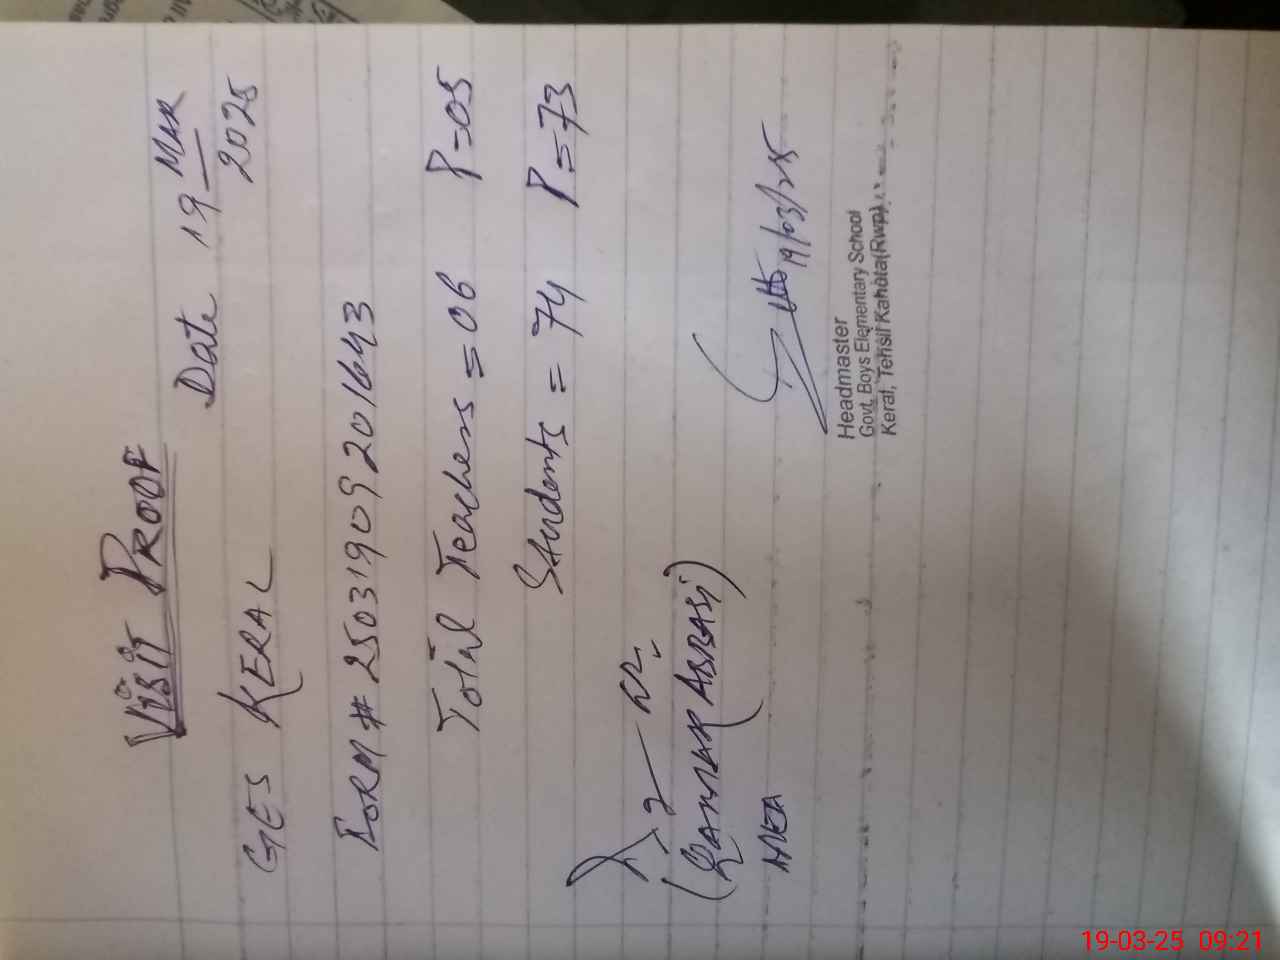 VISIT PROOF
Date 19 MAR 2025
GES KERAL
FORM # 25031909201643
Total Teachers = 06 P=05
Students = 74 P=73
19/03/25
Headmaster
Govt. Boys Elementary School
Keral, Tehsil Kahuta(Rwp)
ABBASI)
19-03-25 09:21